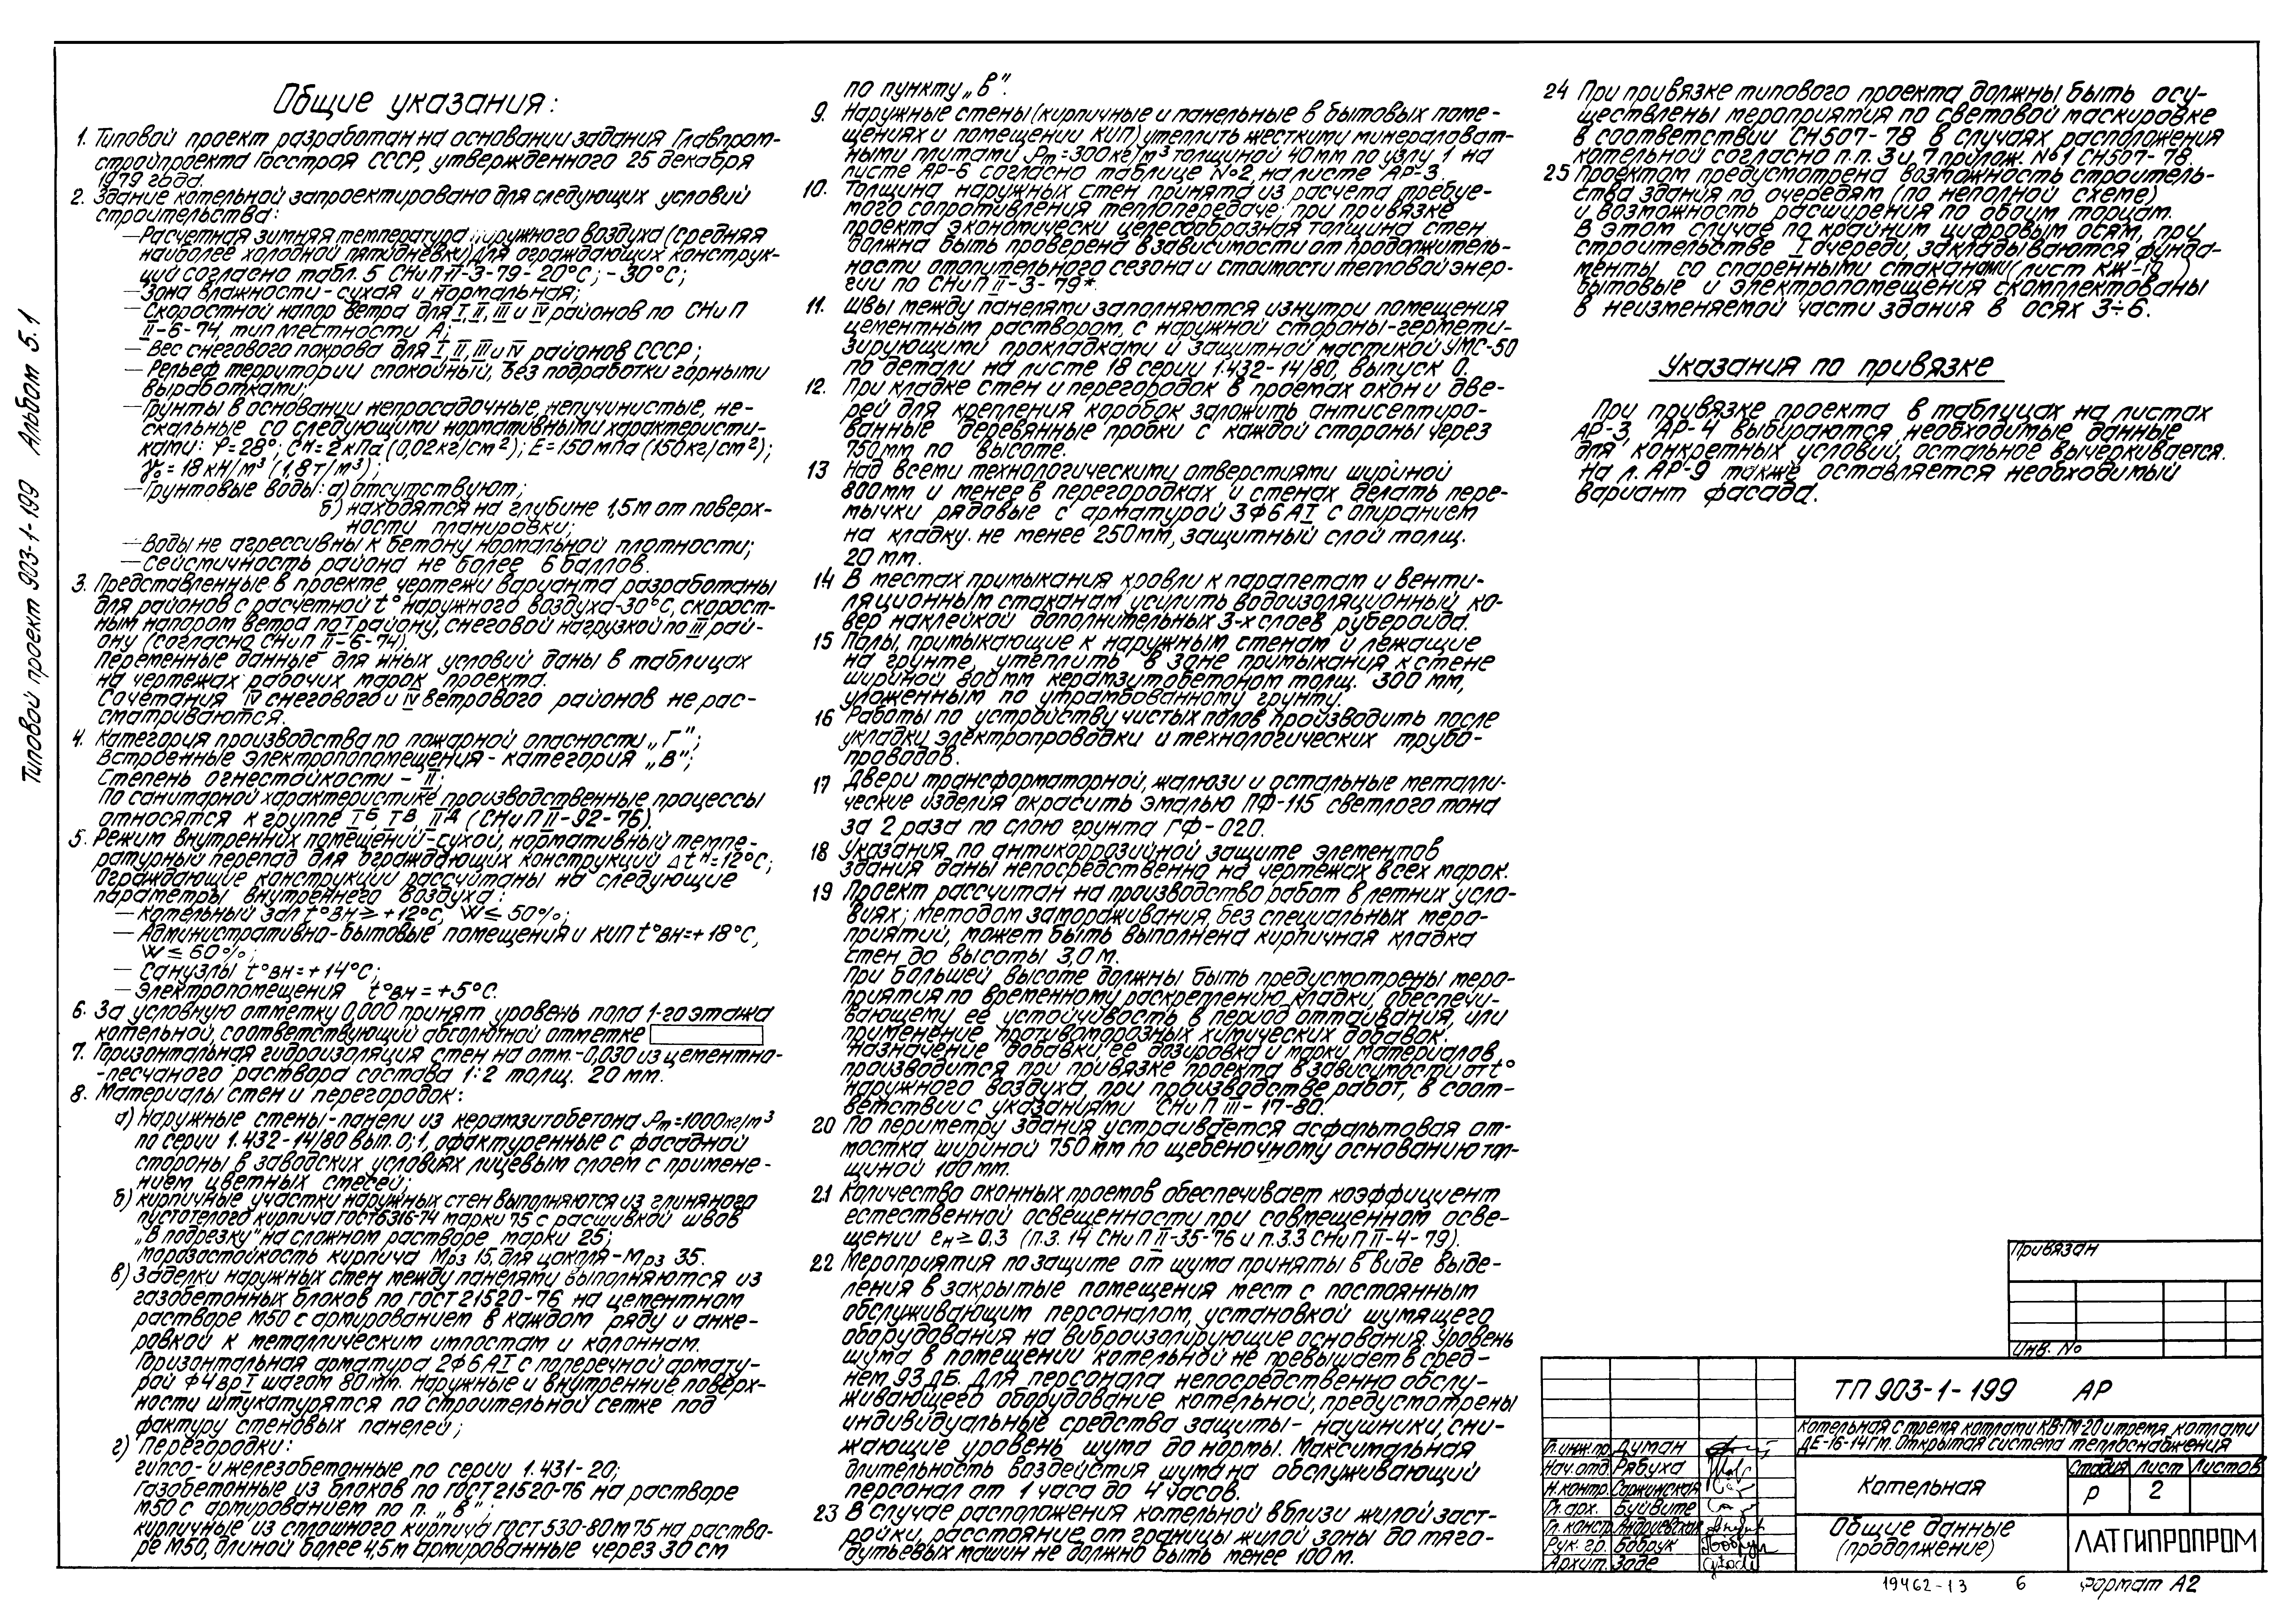 Типовой проект 903-1-199 Альбом 5.1
Общие указания:
1. Типовой проект разработан на основании задания Главпром-
стройпроекта Госстроя СССР, утвержденного 25 декабря
1979 года.
2. Здание котельной запроектировано для следующих условий
строительства:
— Расчетная зимняя температура наружного воздуха (средняя
наиболее холодной пятидневки) для ограждающих конструк-
ций согласно табл. 5 СНиП II-3-79 - 20°С; - 30°С;
— Зона влажности - сухая и нормальная;
— Скоростной напор ветра для I, II, III и IV районов по СНиП
II-6-74, тип местности А;
— Вес снегового покрова для I, II, III и IV районов СССР;
— Рельеф территории спокойный, без подработки горными
выработками;
— Грунты в основании непросадочные, непучинистые, не-
скальные со следующими нормативными характеристи-
ками: φ=28°; Cн=2кПа (0,02кг/см²); E=150мпа (150кг/см²);
γо=18кН/м³ (1,8т/м³);
— Грунтовые воды: а) отсутствуют;
б) находятся на глубине 1,5м от поверх-
ности планировки;
— Воды не агрессивны к бетону нормальной плотности;
— Сейсмичность района не более 6 баллов.
3. Представленные в проекте чертежи варианта разработаны
для районов с расчетной t° наружного воздуха -30°С, скорост-
ным напором ветра по I району, снеговой нагрузкой по III рай-
ону (согласно СНиП II-6-74).
Переменные данные для иных условий даны в таблицах
на чертежах рабочих марок проекта.
Сочетания IV снегового и IV ветрового районов не рас-
сматриваются.
4. Категория производства по пожарной опасности „Г";
Встроенные электропопомещения - категория „В";
Степень огнестойкости - II;
По санитарной характеристике производственные процессы
относятся к группе Iб, Iв, IIд (СНиП II-92-76).
5. Режим внутренних помещений - сухой, нормативный темпе-
ратурный перепад для ограждающих конструкций Δtн=12°С;
Ограждающие конструкции рассчитаны на следующие
параметры внутреннего воздуха:
— Котельный зал t°вн ≥ +12°С, W ≤ 50%;
— Административно-бытовые помещения и КИП t°вн=+18°С,
W ≤ 60%;
— Санузлы t°вн=+14°С;
— Электропомещения t°вн=+5°С.
6. За условную отметку 0,000 принят уровень пола 1-го этажа
котельной, соответствующий абсолютной отметке
7. Горизонтальная гидроизоляция стен на отм.-0,030 из цементно-
-песчаного раствора состава 1:2 толщ. 20мм.
8. Материалы стен и перегородок:
а) Наружные стены - панели из керамзитобетона ρm=1000кг/м³
по серии 1.432-14/80 вып. 0;1, офактуренные с фасадной
стороны в заводских условиях лицевым слоем с примене-
нием цветных смесей;
б) кирпичные участки наружных стен выполняются из глиняного
пустотелого кирпича ГОСТ 6316-74 марки 75 с расшивкой швов
„В подрезку" на сложном растворе марки 25;
морозостойкость кирпича Мрз 15, для цоколя - Мрз 35.
в) Заделки наружных стен между панелями выполняются из
газобетонных блоков по ГОСТ 21520-76 на цементном
растворе М50 с армированием в каждом ряду и анке-
ровкой к металлическим импостам и колоннам.
Горизонтальная арматура 2Ф6АI с поперечной армату-
рой Ф4ВрI шагом 80мм. Наружные и внутренние поверх-
ности штукатурятся по строительной сетке под
фактуру стеновых панелей;
г) Перегородки:
гипсо- и железобетонные по серии 1.431-20;
Газобетонные из блоков по ГОСТ 21520-76 на растворе
М50 с армированием по п. „в";
кирпичные из сплошного кирпича ГОСТ 530-80 М75 на раство-
ре М50, длиной более 4,5м армированные через 30см
по пункту „в".
9. Наружные стены (кирпичные и панельные в бытовых поме-
щениях и помещении КИП) утеплить жесткими минераловат-
ными плитами ρm=300кг/м³ толщиной 40мм по узлу 1 на
листе АР-6 согласно таблице №2, на листе АР-3.
10. Толщина наружных стен принята из расчета требуе-
мого сопротивления теплопередаче; при привязке
проекта экономически целесообразная толщина стен
должна быть проверена в зависимости от продолжитель-
ности отопительного сезона и стоимости тепловой энер-
гии по СНиП II-3-79*.
11. Швы между панелями заполняются изнутри помещения
цементным раствором, с наружной стороны - гермети-
зирующими прокладками и защитной мастикой УМС-50
по детали на листе 18 серии 1.432-14/80, выпуск 0.
12. При кладке стен и перегородок в проемах окон и две-
рей для крепления коробок заложить антисептиро-
ванные деревянные пробки с каждой стороны через
750мм по высоте.
13 Над всеми технологическими отверстиями шириной
800мм и менее в перегородках и стенах делать пере-
мычки рядовые с арматурой 3Ф6АI с опиранием
на кладку. не менее 250мм, защитный слой толщ.
20мм.
14 В местах примыкания кровли к парапетам и венти-
ляционным стаканам усилить водоизоляционный ко-
вер наклейкой дополнительных 3-х слоев рубероида.
15 Полы, примыкающие к наружным стенам и лежащие
на грунте, утеплить в зоне примыкания к стене
шириной 800мм керамзитобетоном толщ. 300мм,
уложенным по утрамбованному грунту.
16 Работы по устройству чистых полов производить после
укладки электропроводки и технологических трубо-
проводов.
17 Двери трансформаторной, жалюзи и остальные металли-
ческие изделия окрасить эмалью ПФ-115 светлого тона
за 2 раза по слою грунта ГФ-020.
18 Указания по антикоррозийной защите элементов
здания даны непосредственно на чертежах всех марок.
19 Проект рассчитан на производство работ в летних усло-
виях; методом замораживания, без специальных меро-
приятий, может быть выполнена кирпичная кладка
стен до высоты 3,0м.
При большей высоте должны быть предусмотрены меро-
приятия по временному раскреплению кладки, обеспечи-
вающему ее устойчивость в период оттаивания, или
применение противоморозных химических добавок.
Назначение добавки, ее дозировка и марки материалов
производится при привязке проекта в зависимости от t°
наружного воздуха, при производстве работ, в соот-
ветствии с указаниями СНиП III-17-80.
20 По периметру здания устраивается асфальтовая от-
мостка шириной 750мм по щебеночному основанию тол-
щиной 100мм.
21 Количество оконных проемов обеспечивает коэффициент
естественной освещенности при совмещенном осве-
щении eн ≥ 0.3 (п.3.14 СНиП II-35-76 и п.3.3 СНиП II-4-79).
22 Мероприятия по защите от шума приняты в виде выде-
ления в закрытые помещения мест с постоянным
обслуживающим персоналом, установкой шумящего
оборудования на виброизолирующие основания. Уровень
шума в помещении котельной не превышает в сред-
нем 93дБ. Для персонала непосредственно обслу-
живающего оборудование котельной, предусмотрены
индивидуальные средства защиты - наушники, сни-
жающие уровень шума до нормы. Максимальная
длительность воздействия шума на обслуживающий
персонал от 1 часа до 4 часов.
23 В случае расположения котельной вблизи жилой заст-
ройки, расстояние от границы жилой зоны до тяго-
дутьевых машин не должно быть менее 100м.
24 При привязке типового проекта должны быть осу-
ществлены мероприятия по световой маскировке
в соответствии СН507-78 в случаях расположения
котельной согласно п.п. 3 и, 7 прилож. №1 СН507-78.
25 Проектом предусмотрена возможность строитель-
ства здания по очередям (по неполной схеме)
и возможность расширения по обоим торцам.
В этом случае по крайним цифровым осям, при
строительстве I очереди, закладываются фунда-
менты со спаренными стаканами (лист КЖ-10 )
Бытовые и электропомещения скомплектованы
в неизменяемой части здания в осях 3÷6.
Указания по привязке
При привязке проекта в таблицах на листах
АР-3, АР-4 выбираются необходимые данные
для конкретных условий, остальное вычеркивается.
На л. АР-9 также оставляется необходимый
вариант фасада.
Привязан
Инв. №
ТП 903-1-199 АР
Котельная с тремя котлами КВ-ГМ-20 и тремя котлами
ДЕ-16-14ГМ. Открытая система теплоснабжения
Гл.инж.пр. Думан
Нач.отд. Рябуха
Н.контр. Саржинская
Гл.арх. Буйвите
Гл.констр. Андриевская
Рук. гр. Бобрук
Архит. Заде
Котельная
Стадия Лист Листов
Р 2
Общие данные
(продолжение)
ЛАТГИПРОПРОМ
19462-13 6 Формат А2